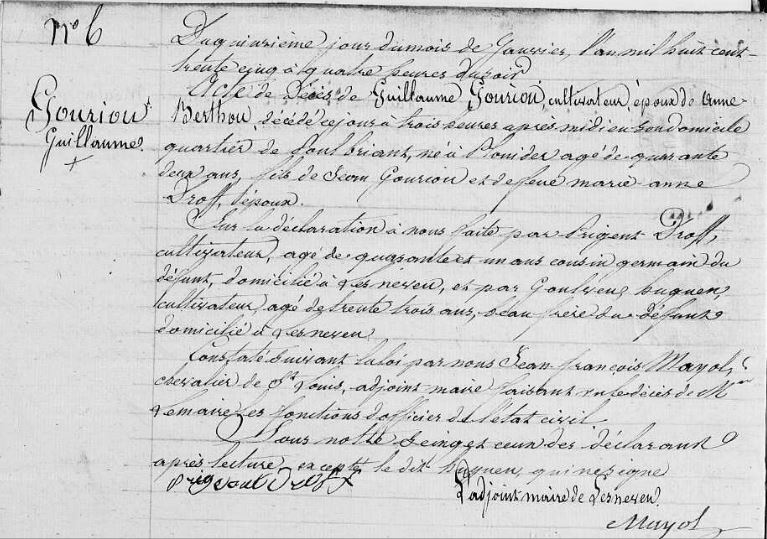 N° 6
Du quinzième jour du mois de Janvier, l'an mil huit cent
trente cinq à quatre heures du soir
Gouriou
Guillaume
Acte de Décès de Guillaume Gouriou, cultivateur, époux de Anne
Berthou, décédé ce jour à trois heures après midi en son domicile
quartier de Poulbriant, né à Plouider agé de quarante
deux ans, fils de Jean Gouriou et de feue marie anne
Droff, l'époux.
Sur la déclaration à nous faite par Prigent Droff,
cultivateur, agé de quarante et un ans cousin germain du
défunt, domicilié à Lesneven, et par Goulven huguen,
cultivateur, agé de trente trois ans, beau frère du défunt
domicilié à Lesneven
Constaté suivant la loi par nous Jean françois Mayol,
chevalier de St Louis, adjoint maire faisant vu le décès de Mr
Le maire les fonctions d'officier de l'état civil
Sous notre seing et ceux des déclarant
après lecture, excepté le dit huguen, qui ne signe
L'adjoint maire de Lesneven.
Mayol